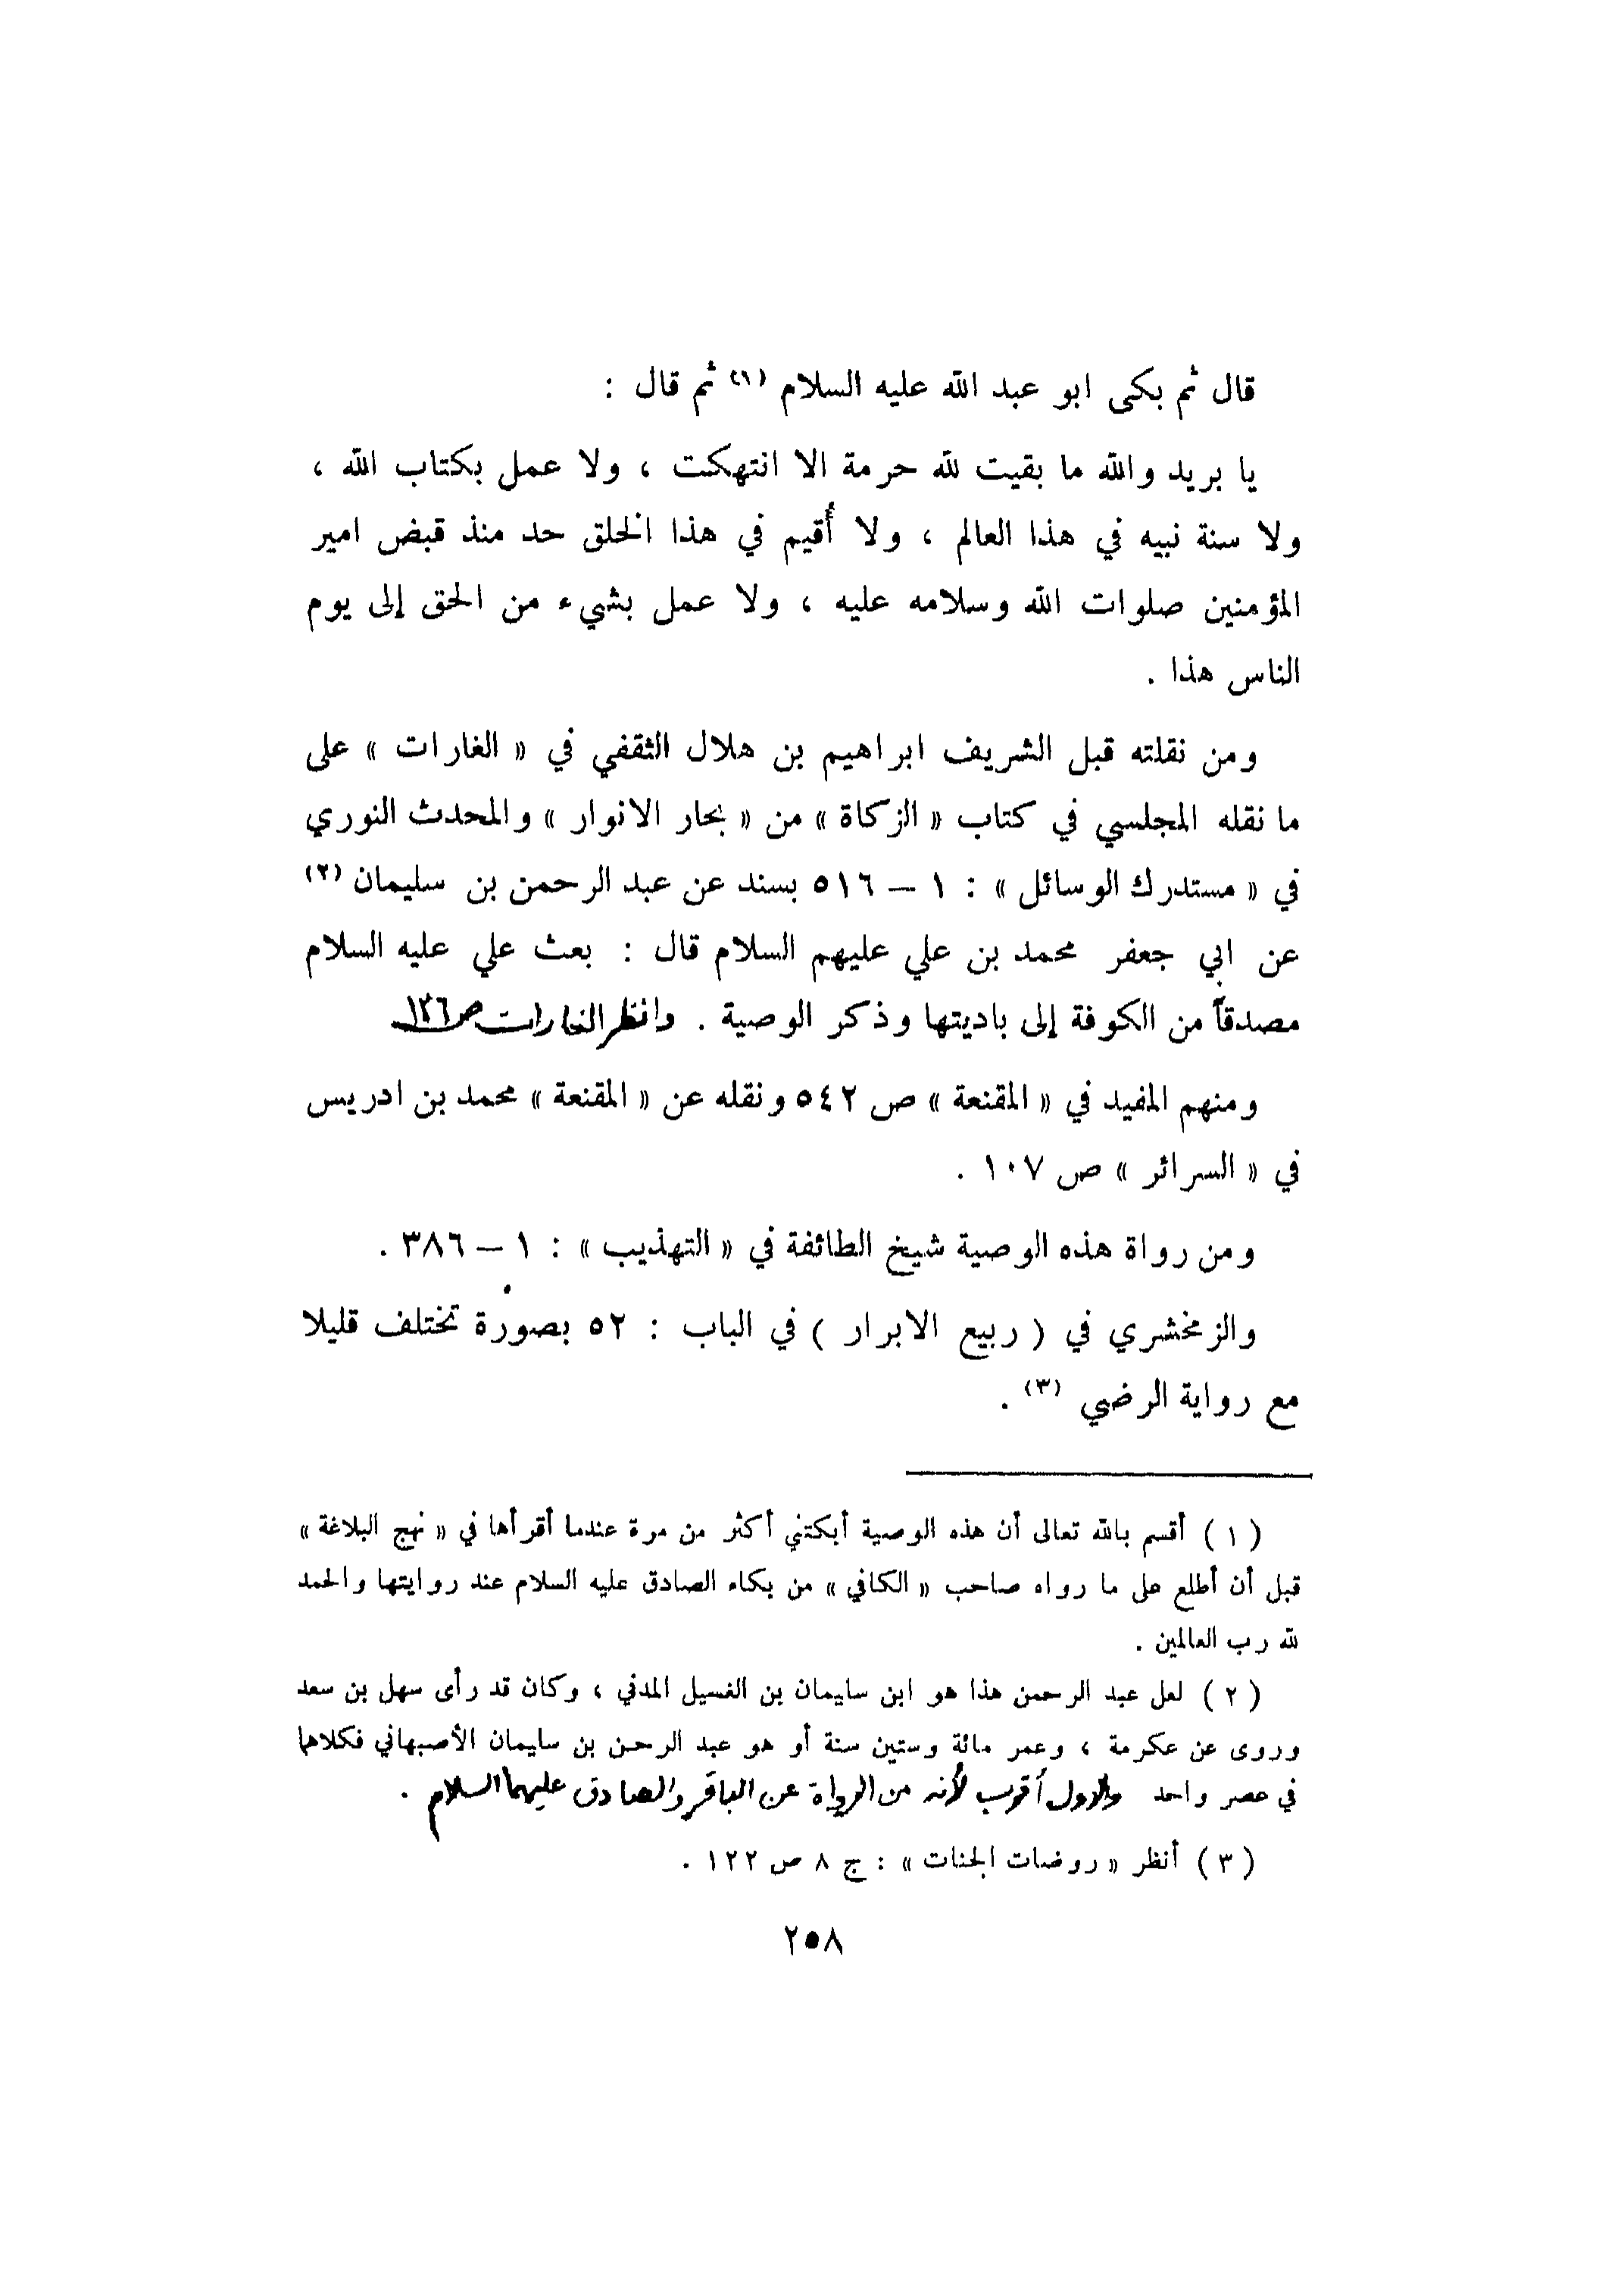 قال ثم بكى ابو عبد الله عليه السلام (١) ثم قال :
يا بريد والله ما بقيت لله حرمة الا انتهكت ، ولا عمل بكتاب الله ،
ولا سنة نبيه في هذا العالم ، ولا أُقيم في هذا الخلق حد منذ قبض امير
المؤمنين صلوات الله وسلامه عليه ، ولا عمل بشيء من الحق إلى يوم
الناس هذا .
ومن نقلته قبل الشريف ابراهيم بن هلال الثقفي في « الغارات » على
ما نقله المجلسي في كتاب « الزكاة » من « بحار الانوار » والمحدث النوري
في « مستدرك الوسائل » : ١ – ٥١٦ بسند عن عبد الرحمن بن سليمان (٢)
عن ابي جعفر محمد بن علي عليهم السلام قال : بعث علي عليه السلام
مصدقاً من الكوفة إلى باديتها وذكر الوصية . وانظر الغارات ص ١٢٦
ومنهم المفيد في « المقنعة » ص ٥٤٢ ونقله عن « المقنعة » محمد بن ادريس
في « السرائر » ص ١٠٧ .
ومن رواة هذه الوصية شيخ الطائفة في « التهذيب » : ١ – ٣٨٦ .
والزمخشري في ( ربيع الابرار ) في الباب : ٥٢ بصورة تختلف قليلا
مع رواية الرضي (٣) .
( ١ ) أقسم بالله تعالى أن هذه الوصية أبكتني أكثر من مرة عندما أقرأها في « نهج البلاغة »
قبل أن أطلع على ما رواه صاحب « الكافي » من بكاء الصادق عليه السلام عند روايتها والحمد
لله رب العالمين .
( ٢ ) لعل عبد الرحمن هذا هو ابن سليمان بن الغسيل المدني ، وكان قد رأى سهل بن سعد
وروى عن عكرمة ، وعمر مائة وستين سنة أو هو عبد الرحمن بن سليمان الأصبهاني فكلاهما
في عصر واحد والاول أقرب لأنه من الرواة عن الباقر والصادق عليهما السلام .
( ٣ ) أنظر « روضات الجنات » : ج ٨ ص ١٢٢ .
٢٥٨